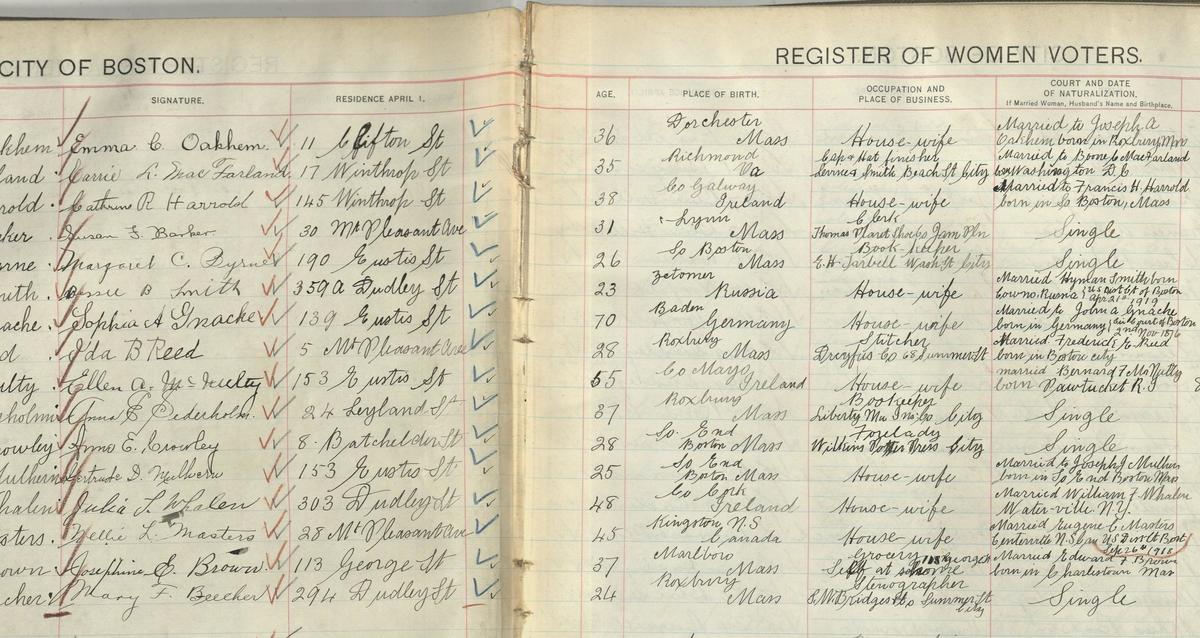 CITY OF BOSTON.
REGISTER OF WOMEN VOTERS.
SIGNATURE. RESIDENCE APRIL 1. AGE. PLACE OF BIRTH. OCCUPATION AND PLACE OF BUSINESS. COURT AND DATE OF NATURALIZATION.
If Married Woman, Husband's Name and Birthplace.
Emma C. Oakhem. 11 Clifton St 36 Dorchester Mass House-wife Married to Joseph A Oakhem born in Roxbury
land Carrie L. MacFarland 17 Winthrop St 35 Richmond Va Cap & Hat finisher Smith Beach St City Married to Boone C MacFarland Washington D C
rold. Cathrine R Harrold 145 Winthrop St 38 Co Galway Ireland House-wife Married to Francis H. Harrold born in So Boston, Mass
ker. Susan F. Barker 30 Mt Pleasant Ave 31 Lynn Mass Clerk Thomas Single
rne. Margaret C. Byrne 190 Eustis St 26 So Boston Mass Book-keeper E.H. Tarbell Wash St City Single
ith. Bessie B Smith 359A Dudley St 23 Russia House-wife Married Hyman Smith born Russia Apr 21st 1919
ache. Sophia A Gnacke 139 Eustis St 70 Baden Germany House-wife Married to John A Gnacke born in Germany Nov 1876
d. Ida B Reed 5 Mt Pleasant Ave 28 Roxbury Mass Stitcher Dreyfus Co 68 Summer St Married Frederick E Reed born in Boston city
ulty. Ellen A. McNulty 153 Eustis St 55 Co Mayo Ireland House-wife married Bernard F McNulty born Pawtucket R.I
holm Anna E Cederholm. 24 Leyland St 37 Roxbury Mass Bookkeeper Liberty Mu Ins Co City Single
rowley Anna E. Crowley 8. Batchelder St 28 So. End Boston Mass Forelady City Single
Gertrude D. Mulhern 153 Eustis St 25 So End Boston Mass House-wife Married to Joseph J Mulhern born in So End Boston Mass
halen Julia L Whalen 303 Dudley St 48 Co Cork Ireland House-wife Married William F Whalen Waterville N.Y.
sters. Nellie L. Masters 28 Mt Pleasant Ave 45 Kingston, N.S Canada House-wife Married Eugene C Masters Centerville N.S. Can US Dist Ct Bost Sep 26th 1918
own. Josephine E. Brown 113 George St 37 Marlboro Mass Grocery at Married Edward F Brown born in Charlestown Mas
cher. Mary F. Beecher 294 Dudley St 24 Roxbury Mass Stenographer S.W. Bridges & Co Summer St City Single